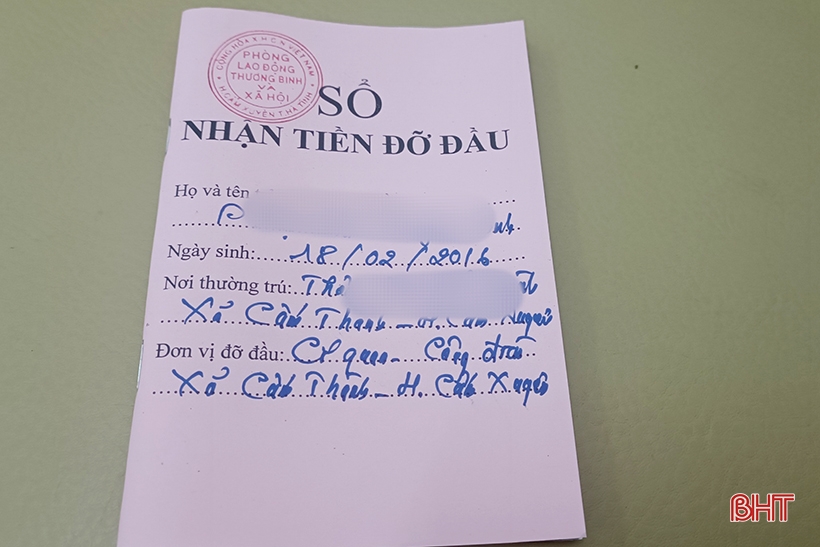 CỘNG HÒA X.H.C.N VIỆT NAM
PHÒNG
LAO ĐỘNG
THƯƠNG BINH
VÀ
XÃ HỘI
H.CẨM XUYÊN T.HÀ TĨNH
SỔ
NHẬN TIỀN ĐỠ ĐẦU
Họ và tên
Ngày sinh: 18/02/2016
Nơi thường trú:
Xã Cẩm Thành - H. Cẩm Xuyên
Đơn vị đỡ đầu: Cơ quan - Công đoàn
Xã Cẩm Thành - H. Cẩm Xuyên
BHT